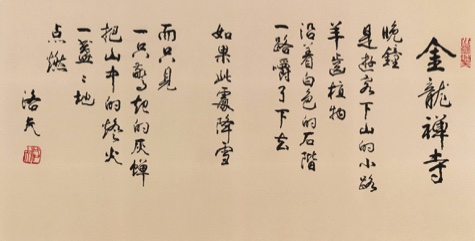 金龍禅寺
晚鐘
是遊客下山的小路
羊齒植物
沿着白色的石階
一路嚼了下去
如果此處降雪
而只見
一只驚起的灰蟬
把山中的燈火
一盞盞地
点燃
洛夫